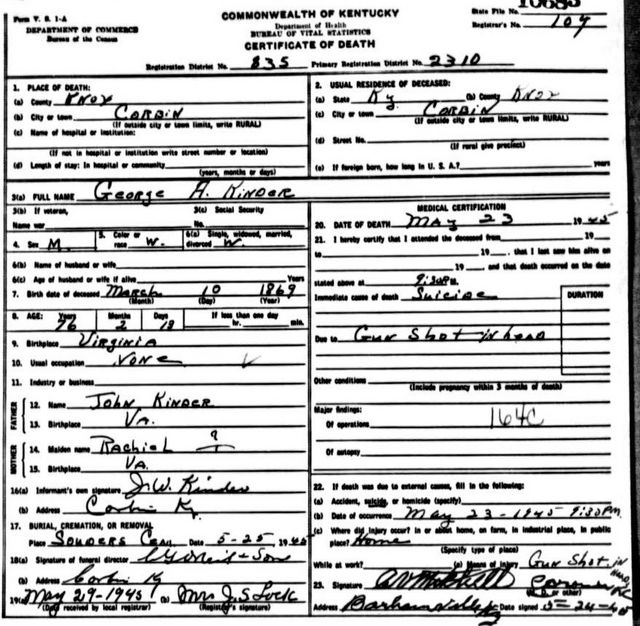 Form V. S. 1-A
DEPARTMENT OF COMMERCE
Bureau of the Census
COMMONWEALTH OF KENTUCKY
Department of Health
BUREAU OF VITAL STATISTICS
CERTIFICATE OF DEATH
State File No. 10683
Registrar's No. 109
Registration District No. 835 Primary Registration District No. 2310
1. PLACE OF DEATH:
(a) County Knox
(b) City or town Corbin
(If outside city or town limits, write RURAL)
(c) Name of hospital or institution:
(If not in hospital or institution write street number or location)
(d) Length of stay: In hospital or community
(years, months or days)
2. USUAL RESIDENCE OF DECEASED:
(a) State Ky (b) County Knox
(c) City or town Corbin
(If outside city or town limits, write RURAL)
(d) Street No.
(If rural give precinct)
(e) If foreign born, how long in U. S. A.? years
3(a) FULL NAME George A. Kinder
3(b) If veteran, Name war
3(c) Social Security No.
4. Sex M. 5. Color or race W. 6(a) Single, widowed, married, divorced W
6(b) Name of husband or wife
6(c) Age of husband or wife if alive Years
7. Birth date of deceased March 10 1869
(Month) (Day) (Year)
8. AGE: Years 76 Months 2 Days 13 If less than one day hr. min.
9. Birthplace Virginia
10. Usual occupation None
11. Industry or business
FATHER
12. Name John Kinder
13. Birthplace Va.
MOTHER
14. Maiden name Rachiel ?
15. Birthplace Va.
16(a) Informant's own signature J.W. Kinder
(b) Address Corbin Ky.
17. BURIAL, CREMATION, OR REMOVAL
Place Sounders Cem. Date 5-25 1945
18(a) Signature of funeral director & Son
(b) Address Corbin Ky
19(a) May 29-1945 (b) Mrs J. S. Lock
(Date received by local registrar) (Registrar's signature)
MEDICAL CERTIFICATION
20. DATE OF DEATH May 23 1945
21. I hereby certify that I attended the deceased from 19
to 19 , that I last saw him alive on
19 , and that death occurred on the date
stated above at 9:30 P.m.
Immediate cause of death Suicide
DURATION
Due to Gun Shot in head
Other conditions
(Include pregnancy within 3 months of death)
Major findings:
Of operations 164C
Of autopsy
22. If death was due to external causes, fill in the following:
(a) Accident, suicide, or homicide (specify)
(b) Date of occurrence May 23-1945 9:30 P.M.
(c) Where did injury occur? In or about home, on farm, in industrial place, in public
place? Home
(Specify type of place)
While at work? (e) Means of injury Gun Shot in head
23. Signature
(M. D. or other)
Address Date signed 5-24-45